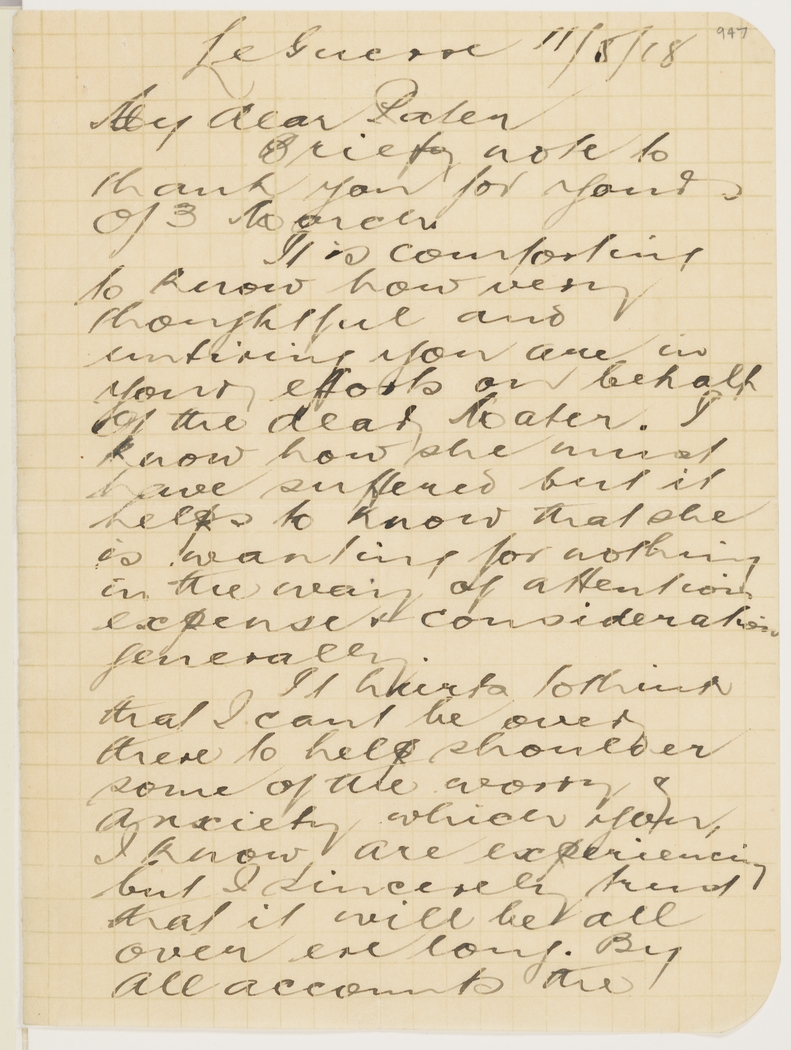 947
Le Guerre 11/5/18
My dear Pater
Briefly note to
thank you for yours
of 3 March.
It is comforting
to know how very
thoughtful and
untiring you are in
your efforts on behalf
of the dear Mater. I
know how she must
have suffered but it
helps to know that she
is wanting for nothing
in the way of attention
expense & consideration
generally.
It hurts to think
that I cant be over
there to help shoulder
some of the worry &
anxiety which you,
I know are experiencing
but I sincerely trust
that it will be all
over ere long. By
all accounts the